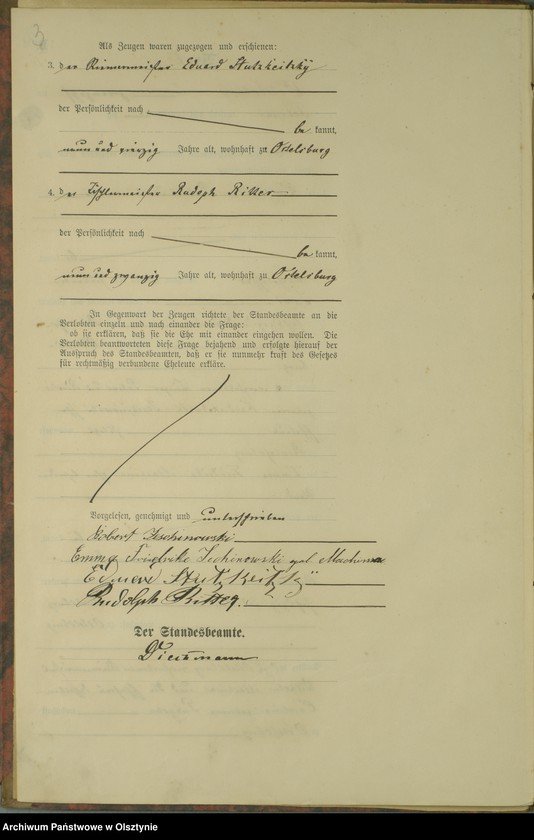 3
Als Zeugen waren zugezogen und erschienen:
3. der Riemermeister Eduard Stutzkeitzky
der Persönlichkeit nach
be kannt,
neun und vierzig Jahre alt, wohnhaft zu Ortelsburg
4. der Tischlermeister Rudolph Ritter
der Persönlichkeit nach
be kannt,
neun und zwanzig Jahre alt, wohnhaft zu Ortelsburg
In Gegenwart der Zeugen richtete der Standesbeamte an die
Verlobten einzeln und nach einander die Frage:
ob sie erklären, daß sie die Ehe mit einander eingehen wollen. Die
Verlobten beantworteten diese Frage bejahend und erfolgte hierauf der
Ausspruch des Standesbeamten, daß er sie nunmehr kraft des Gesetzes
für rechtmäßig verbundene Eheleute erkläre.
Vorgelesen, genehmigt und unterschrieben
Robert Jechinowski
Emma Jechinowski geb.
Eduard Stutzkeitzky
Rudolph Ritter.
Der Standesbeamte.
Archiwum Państwowe w Olsztynie